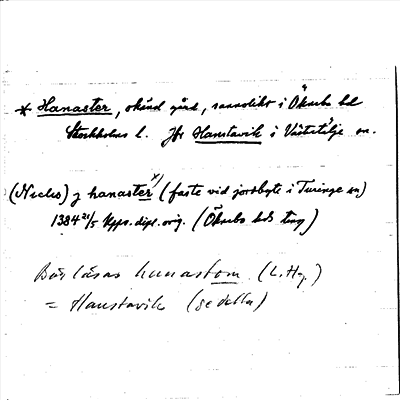 * Hanaster, okänd gård, sannolikt i Öknebo hd
Stockholms l. Jfr Hanstavik i Västertälje sn.
(Niclis) j hanasterˣ⁾ (faste vid jordbyte i Turinge sn)
1384 21/5 Upps. dipl. orig. (Öknebo hds ting)
Bör läsas hanastom (L. Hg.)
= Hanstavik (se detta)